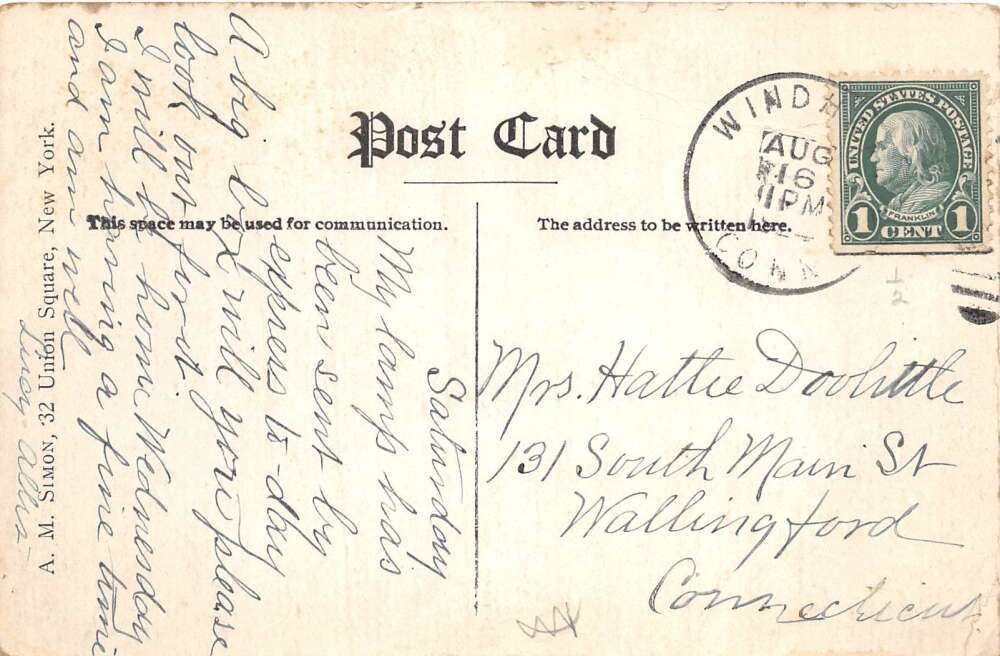 Post Card
This space may be used for communication.
The address to be written here.
A. M. SIMON, 32 Union Square, New York.
WINDH
AUG
16
11 PM
CONN
UNITED STATES POSTAGE
FRANKLIN
1 CENT 1
1/2
Saturday
My lamp has
been sent by
express to-day
A big box will you please
look out for it
I will be home Wednesday
I am having a fine time
and am well
Lucy
Mrs. Hattie Doolittle
131 South Main St
Wallingford
Connecticut